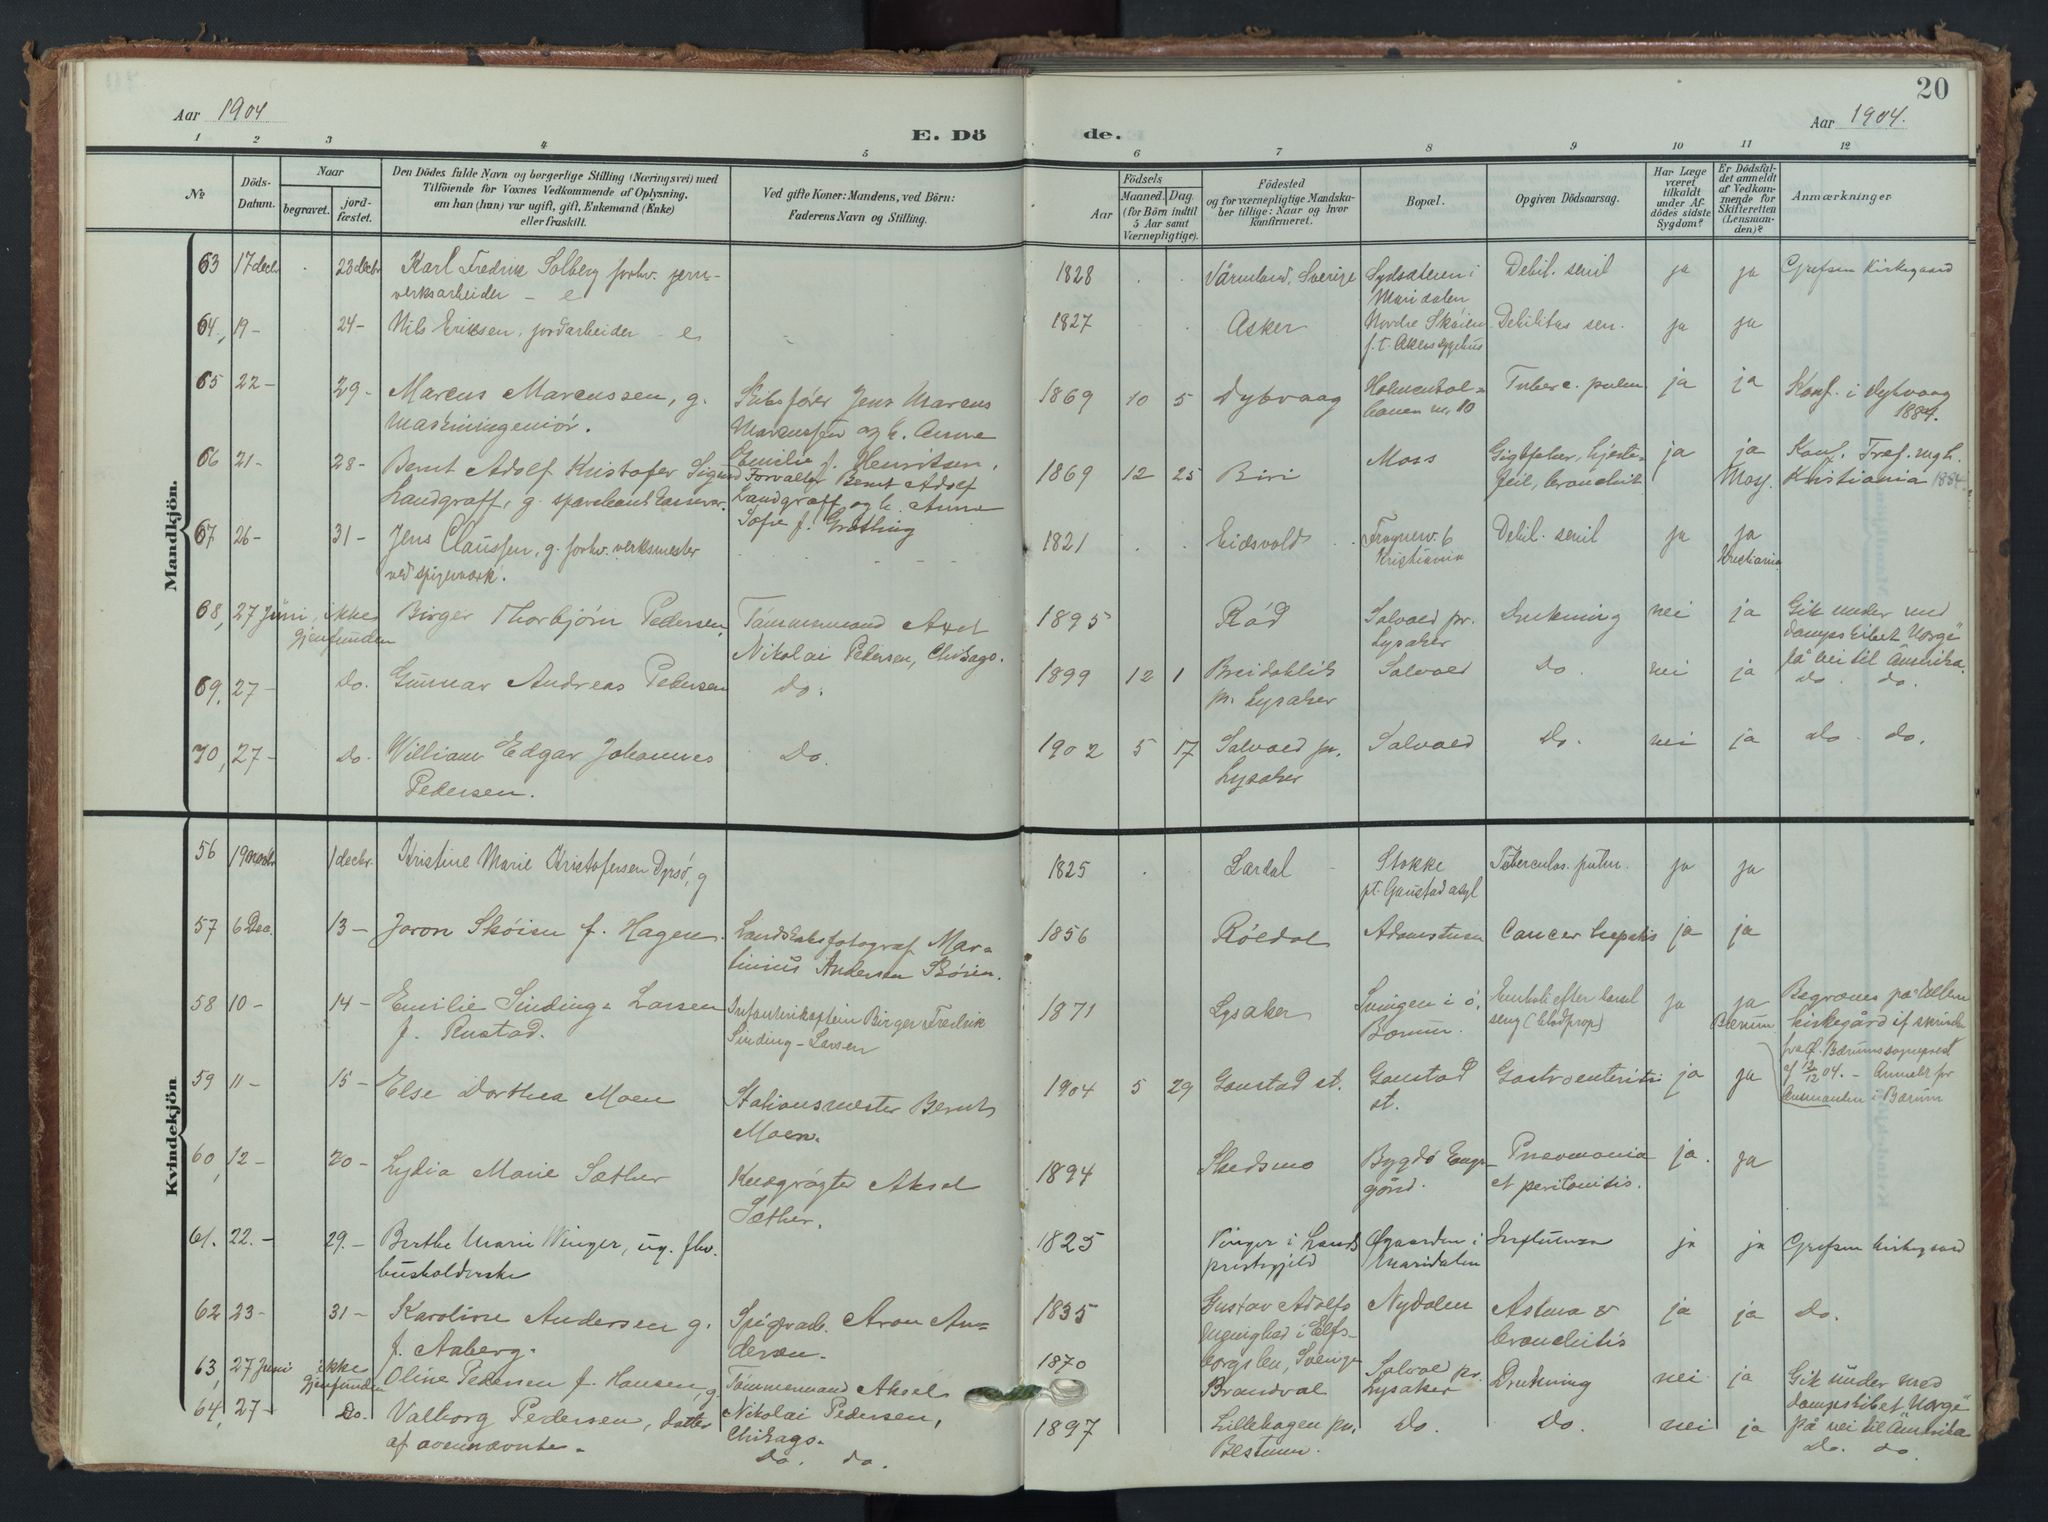 20
Aar 1904
Aar 1904.
E. Dö
de.
1 2 3 4 5 6 7 8 9 10 11 12
No.
Döds-
Datum.
Naar
begravet.
jord-
fæstet.
Den Dödes fulde Navn og borgerlige Stilling (Næringsvei) med
Tilföiende for Voxnes Vedkommende af Oplysning,
om han (hun) var ugift, gift, Enkemand (Enke)
eller fraskilt.
Ved gifte Koner: Mandens, ved Börn:
Faderens Navn og Stilling.
Födsels
Aar
Maaned. Dag.
(for Börn indtil
5 Aar samt
Værnepligtige).
Födested
og for værnepligtige Mandska-
ber tillige: Naar og hvor
konfirmeret.
Bopæl.
Opgiven Dödsaarsag.
Har Læge
været
tilkaldt
under Af-
dödes sidste
Sygdom?
Er Dödsfal-
det anmeldt
af Vedkom-
mende for
Skifteretten
(Lensman-
den)?
Anmærkninger
Mandkjön.
63 17 decbr 23 decbr Karl Fredrik Solberg forhv. jern- 1828 Värmland, Sverige Sydsæteren i Debil. senil ja ja Grefsen Kirkegaard
verksarbeider - e Maridalen
64, 19- 24- Nils Eriksen, jordarbeider - e 1827 Asker Nordre Skøien Debilitas sen. ja ja
f. t. Akers sygehus
65 22- 29- Marcus Marcussen, g. Skibsfører Jens Marcus 1869 10 5 Dybvaag Holmenkol- Tuberc. pulm ja ja Konf. i Dybvaag
Maskiningeniør. Marcussen og h. Anne banen nr. 10 1884.
Emilie f. Henriksen.
66 21- 28- Bernt Adolf Kristofer Sigurd Forvalter Bernt Adolf 1869 12 25 Biri Moss Gigtfeber, hjerte- ja ja Konf. Tref. mgh.
Landgraff, g. Landgraff og h. Anne feil, bronchit Moss. Kristiania 1884
Sofie f. Grøthing
67 26- 31- Jens Claussen, g. forhv. verksmester 1821 Eidsvold Frognerv. 6 Debil. senil ja ja
ved spigerverk. Kristiania Kristiania
68, 27 Juni ikke Birger Thorbjørn Pedersen, Tømmermand Axel 1895 Rød Solvold pr. Drukning nei ja Gik under med
gjenfunden Nikolai Pedersen, Chikago. Lysaker dampskibet "Norge"
på vei til Amerika.
69, 27- Do. Gunnar Andreas Pedersen Do. 1899 12 1 Breidablik Solvold Do. nei ja Do. do.
pr. Lysaker
70, 27- Do. William Edgar Johannes Do. 1902 5 17 Solvold pr. Solvold Do. nei ja do do.
Pedersen. Lysaker
Kvindekjön
56 19 novbr 1 decbr. Kristine Marie Kristofersen Dyrsø, g 1825 Lardal Stokke Tuberculos. pulm. ja ja
pt. Gaustad asyl
57 6 Dec. 13- Joron Skøien f. Hagen. Landskabsfotograf Mar- 1856 Røldal Adamstuen Cancer hepatis ja ja
tinius Andersen Skøien.
58 10- 14- Emilie Sinding-Larsen Infanterikaptein Birger Fredrik 1871 Lysaker i ø. Emboli efter barsel ja ja Begraves på Ullern
f. Rustad. Sinding-Larsen Bærum. seng (blodprop) Bærum kirkegård if skrivelse
fra Bærums sogneprest
af 12/12 04. - Anmeldt for
lensmanden i Bærum
59 11- 15- Else Dorthea Moen Stationsmester Bernt 1904 5 29 Gaustad st. Gaustad Gastroenteritis ja ja
Moen. st.
60, 12- 20- Lydia Marie Sæther Kusgrøgter Aksel 1894 Skedsmo Bygdø Kongs- Pneumonia ja. ja
Sæther. gård. et peritonitis.
61. 22.- 29.- Berthe Marie Winger, ug. fhv. 1825 Vinger i Lands Øgaarden i Influensa ja ja Grefsen Kirkegaard
husholderske prestegjeld Maridalen
62 23- 31- Karoline Andersen g. Spigerarb. Aron An- 1835 Gustav Adolfs Nydalen Astma & ja ja Do.
f. Aaberg. dersen. menighed i Elfs- bronchitis
borgs len, Sverige
63, 27 Juni ikke Oline Pedersen f. Hansen, g. Tømmermand Aksel 1870 Brandval Solvold pr. Drukning nei ja Gik under med
gjenfunden Nikolai Pedersen, Lysaker dampskibet "Norge"
Chikago. på vei til Amerika
64, 27- Do. Valborg Pedersen, datter Do. do. 1897 Lillehagen pr. Do. Do. nei ja Do. do
af ovennævnte. Bestum.